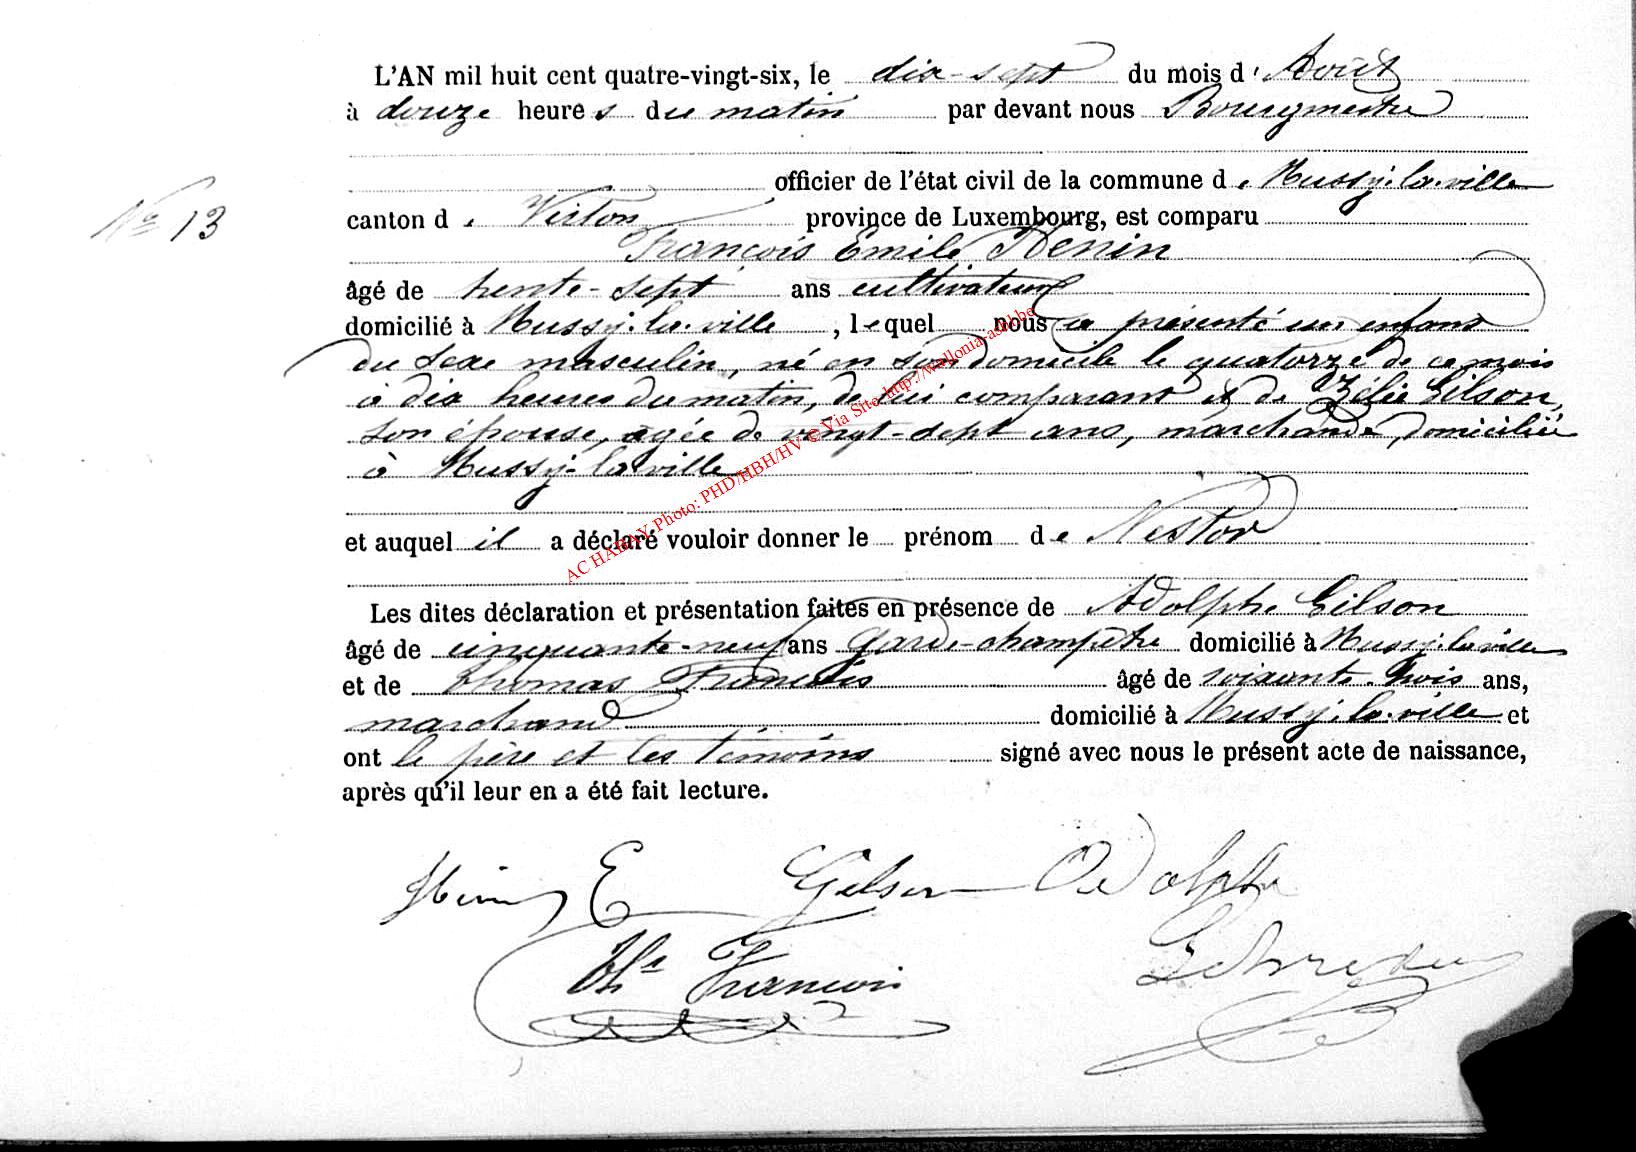 L'AN mil huit cent quatre-vingt-six, le dix-sept du mois d'Août
à douze heures du matin par devant nous Bourgmestre
officier de l'état civil de la commune de Mussy-la-ville
N° 13
canton de Virton province de Luxembourg, est comparu
François Emile Henin
âgé de trente-sept ans cultivateur
domicilié à Mussy-la-ville, lequel nous a présenté un enfant
du sexe masculin, né en son domicile le quatorze de ce mois
à dix heures du matin, de lui comparant et de Zélie Gilson,
son épouse, agée de vingt-sept ans, marchande, domiciliée
à Mussy-la ville
et auquel il a déclaré vouloir donner le prénom de Nestor
Les dites déclaration et présentation faites en présence de Adolphe Gilson
âgé de cinquante-neuf ans garde-champêtre domicilié à Mussy-la ville
et de Thomas François âgé de soixante-trois ans,
marchand domicilié à Mussy-la-ville et
ont le père et les témoins signé avec nous le présent acte de naissance,
après qu'il leur en a été fait lecture.
Henin E Gilson Adolphe
Ths François
AC HABAY Photo: PHD/HBH/HV © Via Site http://wallonia-asbl.be